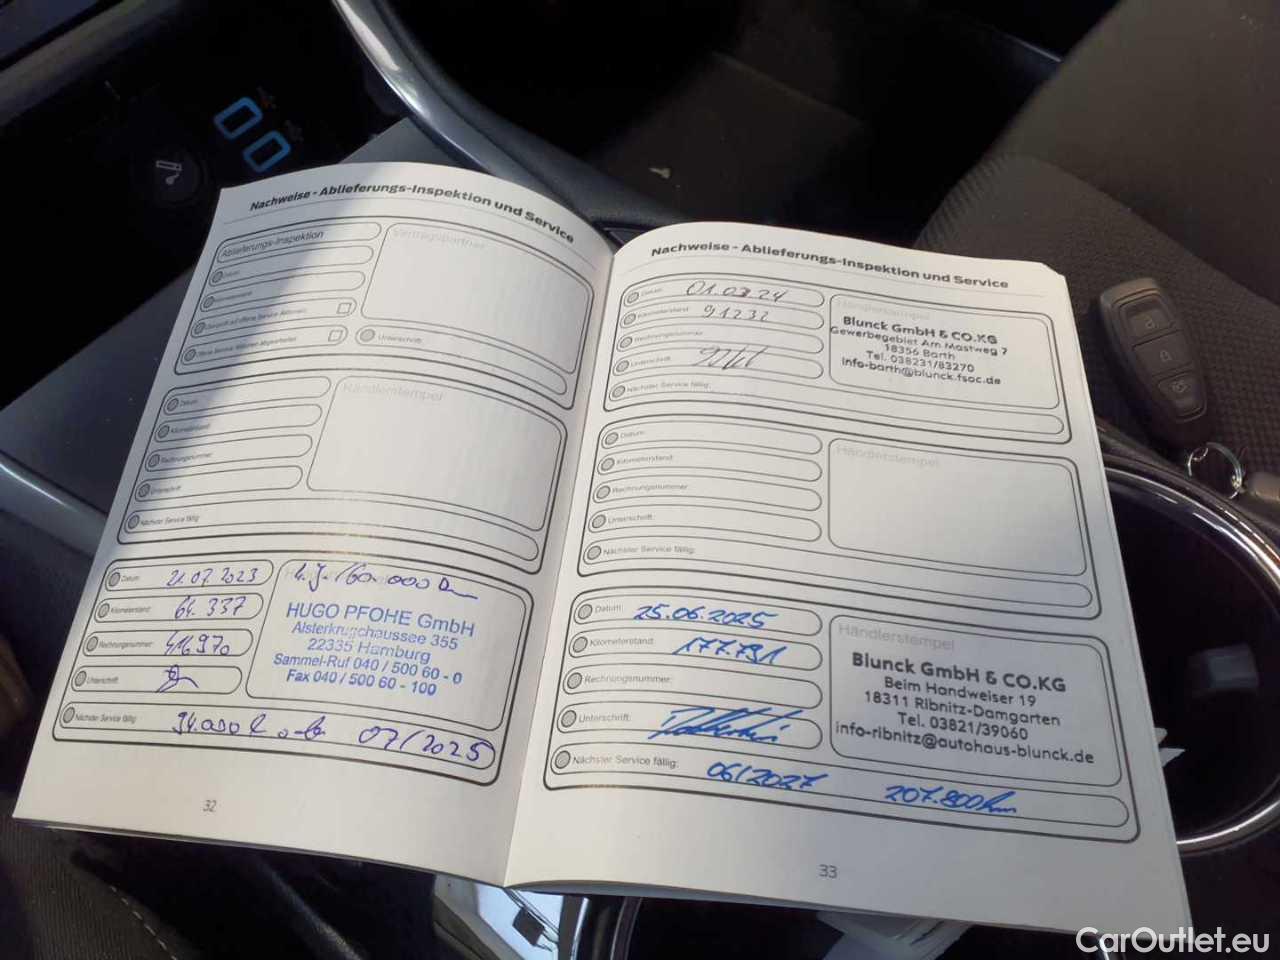 Nachweise - Ablieferungs-Inspektion und Service
Ablieferungs-Inspektion
Vertragspartner
Datum:
Kilometerstand:
Unterschrift:
Datum:
Kilometerstand:
Rechnungsnummer:
Unterschrift:
Nächster Service fällig:
Händlerstempel
Datum: 21.07.2023
Kilometerstand: 64.337
Rechnungsnummer: 416970
Unterschrift:
Nächster Service fällig: 94.000 07/2025
4. J. /60.000
HUGO PFOHE GmbH
Alsterkrugchaussee 355
22335 Hamburg
Sammel-Ruf 040 / 500 60 - 0
Fax 040 / 500 60 - 100
32
Nachweise - Ablieferungs-Inspektion und Service
Datum: 01.03.24
Kilometerstand: 91232
Rechnungsnummer:
Unterschrift:
Nächster Service fällig:
Händlerstempel
Blunck GmbH & CO.KG
Gewerbegebiet Am Mastweg 7
18356 Barth
Tel. 038231/83270
info-barth@blunck.fsoc.de
Datum:
Kilometerstand:
Rechnungsnummer:
Unterschrift:
Nächster Service fällig:
Händlerstempel
Datum: 25.06.2025
Kilometerstand: 177.791
Rechnungsnummer:
Unterschrift:
Nächster Service fällig: 06/2027 207.800km
Händlerstempel
Blunck GmbH & CO.KG
Beim Handweiser 19
18311 Ribnitz-Damgarten
Tel. 03821/39060
info-ribnitz@autohaus-blunck.de
33
CarOutlet.eu